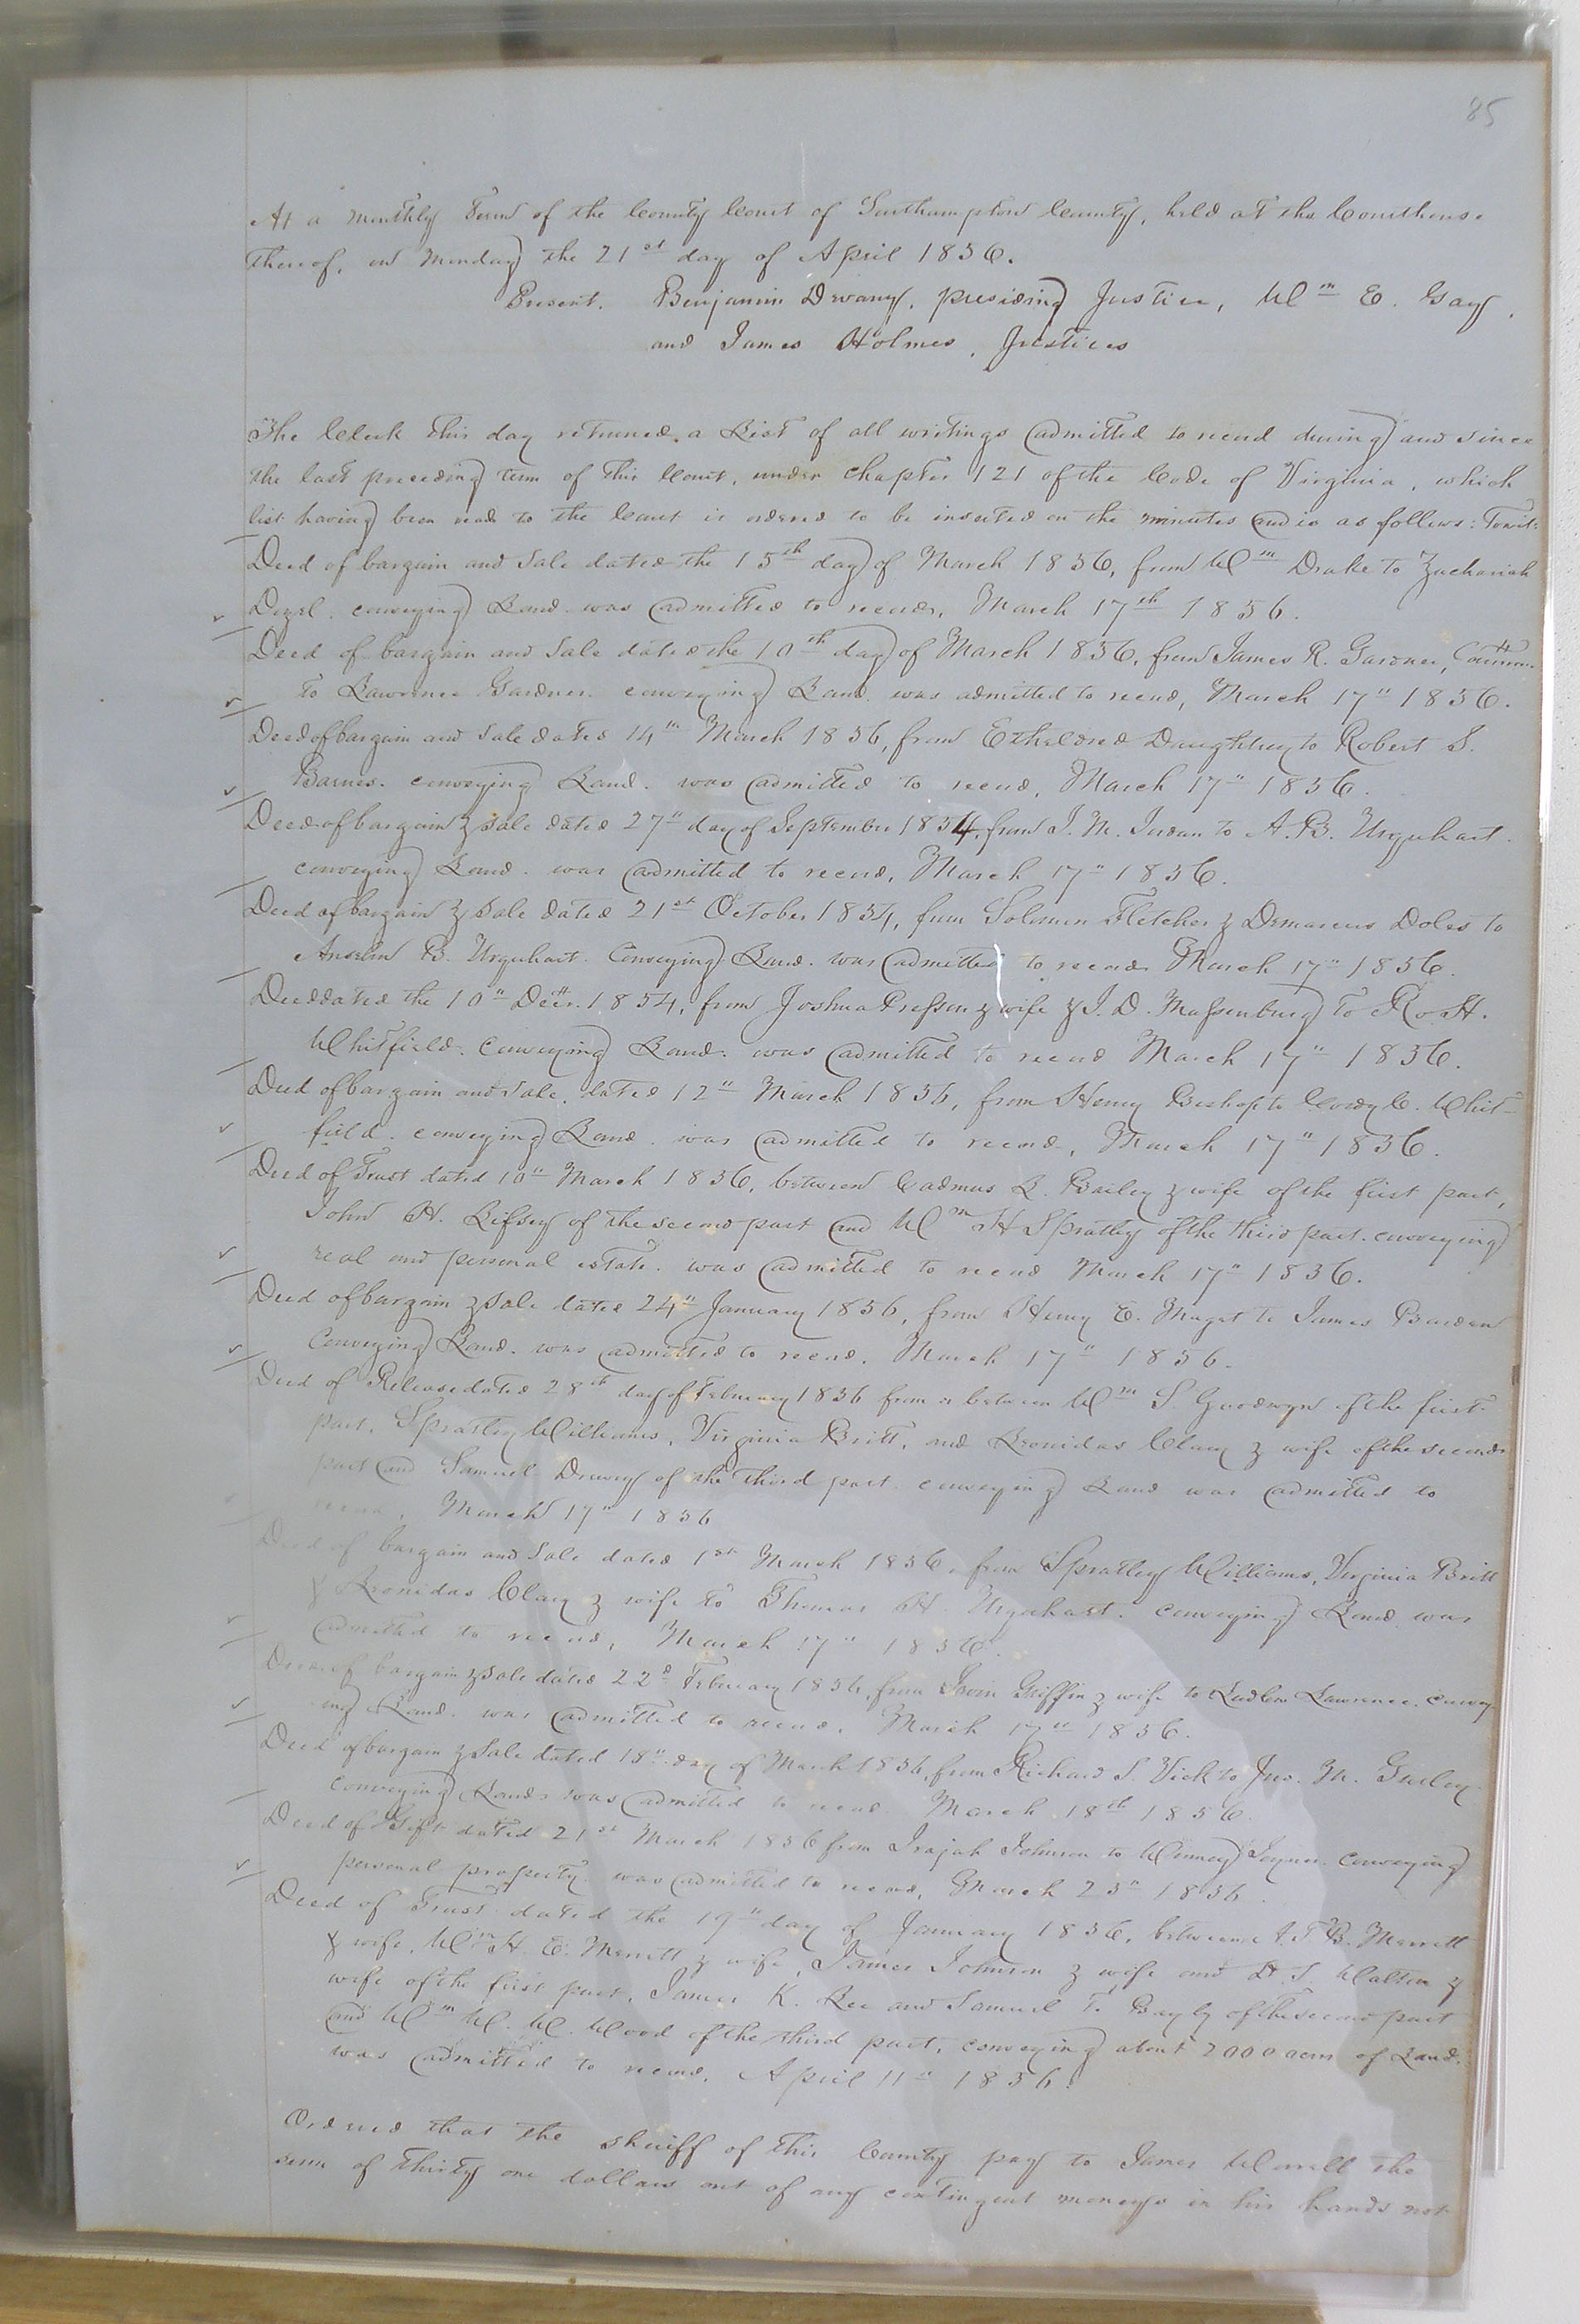 85
At a Monthly Term of the County Court of Southampton County, held at the Courthouse
thereof, on Monday the 21st day of April 1856.
Present. Benjamin Devany, presiding Justice, Wm E. Gay,
and James Holmes, Justices
The Clerk this day returned a List of all writings admitted to record during and since
the last preceding term of this Court, under chapter 121 of the Code of Virginia, which
list having been read to the Court is ordered to be inserted on the minutes and is as follows: Towit:
Deed of bargain and sale dated the 15th day of March 1856, from Wm Drake to Zachariah
conveying Land was admitted to record, March 17th 1856.
Deed of bargain and sale dated the 10th day of March 1856, from James R. Gardner, Commr.
to Lawrence Gardner conveying Land was admitted to record, March 17" 1856.
Deed of bargain and sale dated 14th March 1856, from Etheldred Daughtrey to Robert S.
Barnes. conveying Land. was admitted to record, March 17" 1856.
Deed of bargain & sale dated 27" day of September 1854, from to A. B. Urquhart.
conveying Land. was admitted to record, March 17" 1856.
Deed of bargain & sale dated 21st October 1854, from Solomon Fletcher & Demarcus Doles to
Anselm B. Urquhart. Conveying Land. was admitted to record March 17" 1856.
Deed dated the 10" Decr. 1854, from Joshua Presson & wife & J. D. Massenburg to R. H.
Whitfield. Conveying Land. was admitted to record March 17" 1856.
Deed of bargain and sale, dated 12" March 1856, from Henry Bishop to Cordy C. Whit-
field. conveying Land. was admitted to record, March 17" 1856.
Deed of Trust dated 10" March 1856, between Cadmus L. Bailey & wife of the first part,
John H. Lifsey of the second part and Wm H Spratley of the third part. conveying
real and personal estate. was admitted to record March 17" 1856.
Deed of bargain & sale dated 24" January 1856, from Henry E. Maget to James Barden
Conveying Land. was admitted to record. March 17" 1856.
Deed of Release dated 28th day of February 1856 from & between Wm S. Goodwyn of the first
part, Spratley Williams, Virginia Britt, and Leonidas Clary & wife of the second
part and Samuel Drewry of the third part. conveying Land was admitted to
record, March 17" 1856
Deed of bargain and sale dated 1st March 1856, from Spratley Williams, Virginia Britt
& Leonidas Clary & wife to Thomas H. Urquhart. conveying Land was
admitted to record, March 17" 1856.
Deed of bargain & sale dated 22d February 1856, from Irvin Griffin & wife to Ludlow Lawrence. convey-
ing Land. was admitted to record. March 17" 1856.
Deed of bargain & sale dated 18" day of March 1856, from Richard S. Vick to Jno. M. Gurley.
conveying Land. was admitted to record March 18th 1856.
Deed of Gift dated 21st March 1856 from Johnson to Joyner. conveying
personal property was admitted to record, March 25" 1856.
Deed of Trust dated the 19" day of January 1856, between A. T. B. Merritt
& wife, Wm H. E. Merritt & wife, James Johnson & wife and D. S. Walton &
wife of the first part, James K. Lee and Samuel T. Bayly of the second part
and Wm W. W. Wood of the third part, conveying about 2000 acres of Land.
was admitted to record, April 11" 1856.
Ordered that the sheriff of this County pay to James Worrell the
sum of thirty one dollars out of any contingent moneys in his hands not